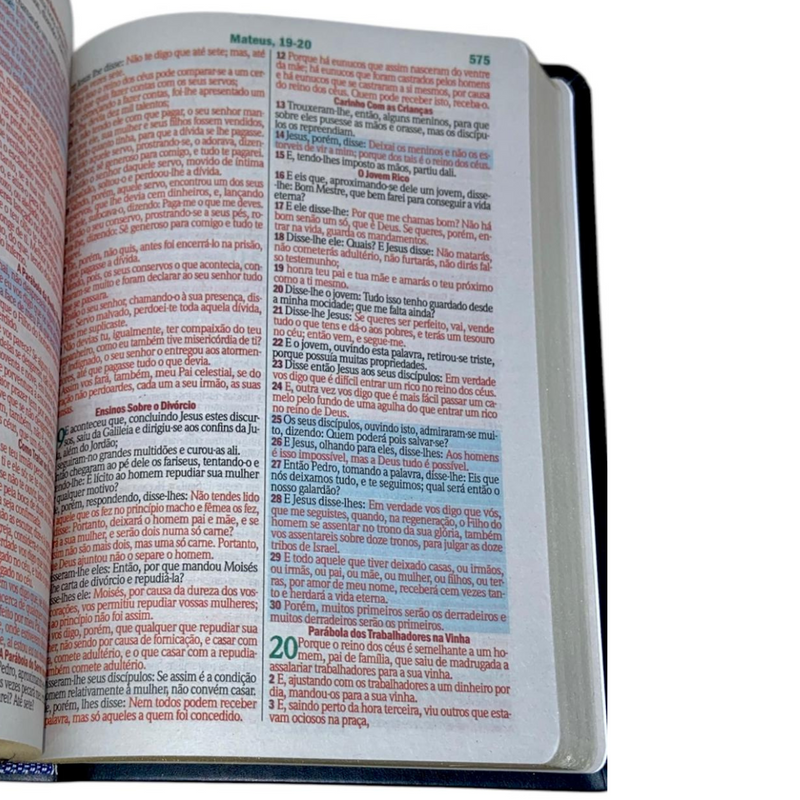 Mateus, 19-20
575
lhe disse: Não te digo que até sete; mas, até
sete.
o reino dos céus pode comparar-se a um cer-
fazer contas com os seus servos;
a fazer contas, foi-lhe apresentado um
dez mil talentos;
ele com que pagar, o seu senhor man-
mulher e seus filhos fossem vendidos,
para que a dívida se lhe pagasse.
servo, prostrando-se, o adorava, dizen-
generoso para comigo, e tudo te pagarei.
senhor daquele servo, movido de íntima
soltou-o e perdoou-lhe a dívida.
porém, aquele servo, encontrou um dos seus
que lhe devia cem dinheiros, e, lançando
sufocava-o, dizendo: Paga-me o que me deves.
o seu conservo, prostrando-se a seus pés, ro-
dizendo: Sê generoso para comigo e tudo te
porém, não quis, antes foi encerrá-lo na prisão,
que pagasse a dívida.
pois, os seus conservos o que acontecia, con-
se muito e foram declarar ao seu senhor tudo
passara.
o seu senhor, chamando-o à sua presença, dis-
Servo malvado, perdoei-te toda aquela dívida,
me suplicaste.
devias tu, igualmente, ter compaixão do teu
como eu também tive misericórdia de ti?
indignado, o seu senhor o entregou aos atormen-
até que pagasse tudo o que devia.
vos fará, também, meu Pai celestial, se do
coração não perdoardes, cada um a seu irmão, as suas
Ensinos Sobre o Divórcio
E aconteceu que, concluindo Jesus estes discur-
sos, saiu da Galileia e dirigiu-se aos confins da Ju-
além do Jordão;
seguiram-no grandes multidões e curou-as ali.
chegaram ao pé dele os fariseus, tentando-o e
dizendo-lhe: É lícito ao homem repudiar sua mulher
qualquer motivo?
porém, respondendo, disse-lhes: Não tendes lido
aquele que os fez no princípio macho e fêmea os fez,
disse: Portanto, deixará o homem pai e mãe, e se
a sua mulher, e serão dois numa só carne?
não são mais dois, mas uma só carne. Portanto,
Deus ajuntou não o separe o homem.
Disseram-lhe eles: Então, por que mandou Moisés
lhe carta de divórcio e repudiá-la?
Disse-lhes ele: Moisés, por causa da dureza dos vos-
corações, vos permitiu repudiar vossas mulheres;
ao princípio não foi assim.
vos digo, porém, que qualquer que repudiar sua
não sendo por causa de fornicação, e casar com
comete adultério; e o que casar com a repudia-
também comete adultério.
Disseram-lhe seus discípulos: Se assim é a condição
homem relativamente à mulher, não convém casar.
porém, lhes disse: Nem todos podem receber
palavra, mas só aqueles a quem foi concedido.
12 Porque há eunucos que assim nasceram do ventre
da mãe; há eunucos que foram castrados pelos homens
e há eunucos que se castraram a si mesmos, por causa
do reino dos céus. Quem pode receber isto, receba-o.
Carinho Com as Crianças
13 Trouxeram-lhe, então, alguns meninos, para que
sobre eles pusesse as mãos e orasse, mas os discípu-
los os repreendiam.
14 Jesus, porém, disse: Deixai os meninos e não os es-
torveis de vir a mim; porque dos tais é o reino dos céus.
15 E, tendo-lhes imposto as mãos, partiu dali.
O Jovem Rico
16 E eis que, aproximando-se dele um jovem, disse-
-lhe: Bom Mestre, que bem farei para conseguir a vida
eterna?
17 E ele disse-lhe: Por que me chamas bom? Não há
bom senão um só, que é Deus. Se queres, porém, en-
trar na vida, guarda os mandamentos.
18 Disse-lhe ele: Quais? E Jesus disse: Não matarás,
não cometerás adultério, não furtarás, não dirás fal-
so testemunho;
19 honra teu pai e tua mãe e amarás o teu próximo
como a ti mesmo.
20 Disse-lhe o jovem: Tudo isso tenho guardado desde
a minha mocidade; que me falta ainda?
21 Disse-lhe Jesus: Se queres ser perfeito, vai, vende
tudo o que tens e dá-o aos pobres, e terás um tesouro
no céu; então vem, e segue-me.
22 E o jovem, ouvindo esta palavra, retirou-se triste,
porque possuía muitas propriedades.
23 Disse então Jesus aos seus discípulos: Em verdade
vos digo que é difícil entrar um rico no reino dos céus.
24 E, outra vez vos digo que é mais fácil passar um ca-
melo pelo fundo de uma agulha do que entrar um rico
no reino de Deus.
25 Os seus discípulos, ouvindo isto, admiraram-se mui-
to, dizendo: Quem poderá pois salvar-se?
26 E Jesus, olhando para eles, disse-lhes: Aos homens
é isso impossível, mas a Deus tudo é possível.
27 Então Pedro, tomando a palavra, disse-lhe: Eis que
nós deixamos tudo, e te seguimos; qual será então o
nosso galardão?
28 E Jesus disse-lhes: Em verdade vos digo que vós,
que me seguistes, quando, na regeneração, o Filho do
homem se assentar no trono da sua glória, também
vos assentareis sobre doze tronos, para julgar as doze
tribos de Israel.
29 E todo aquele que tiver deixado casas, ou irmãos,
ou irmãs, ou pai, ou mãe, ou mulher, ou filhos, ou ter-
ras, por amor de meu nome, receberá cem vezes tan-
to e herdará a vida eterna.
30 Porém, muitos primeiros serão os derradeiros e
muitos derradeiros serão os primeiros.
Parábola dos Trabalhadores na Vinha
20 Porque o reino dos céus é semelhante a um ho-
mem, pai de família, que saiu de madrugada a
assalariar trabalhadores para a sua vinha.
2 E, ajustando com os trabalhadores a um dinheiro por
dia, mandou-os para a sua vinha.
3 E, saindo perto da hora terceira, viu outros que esta-
vam ociosos na praça,